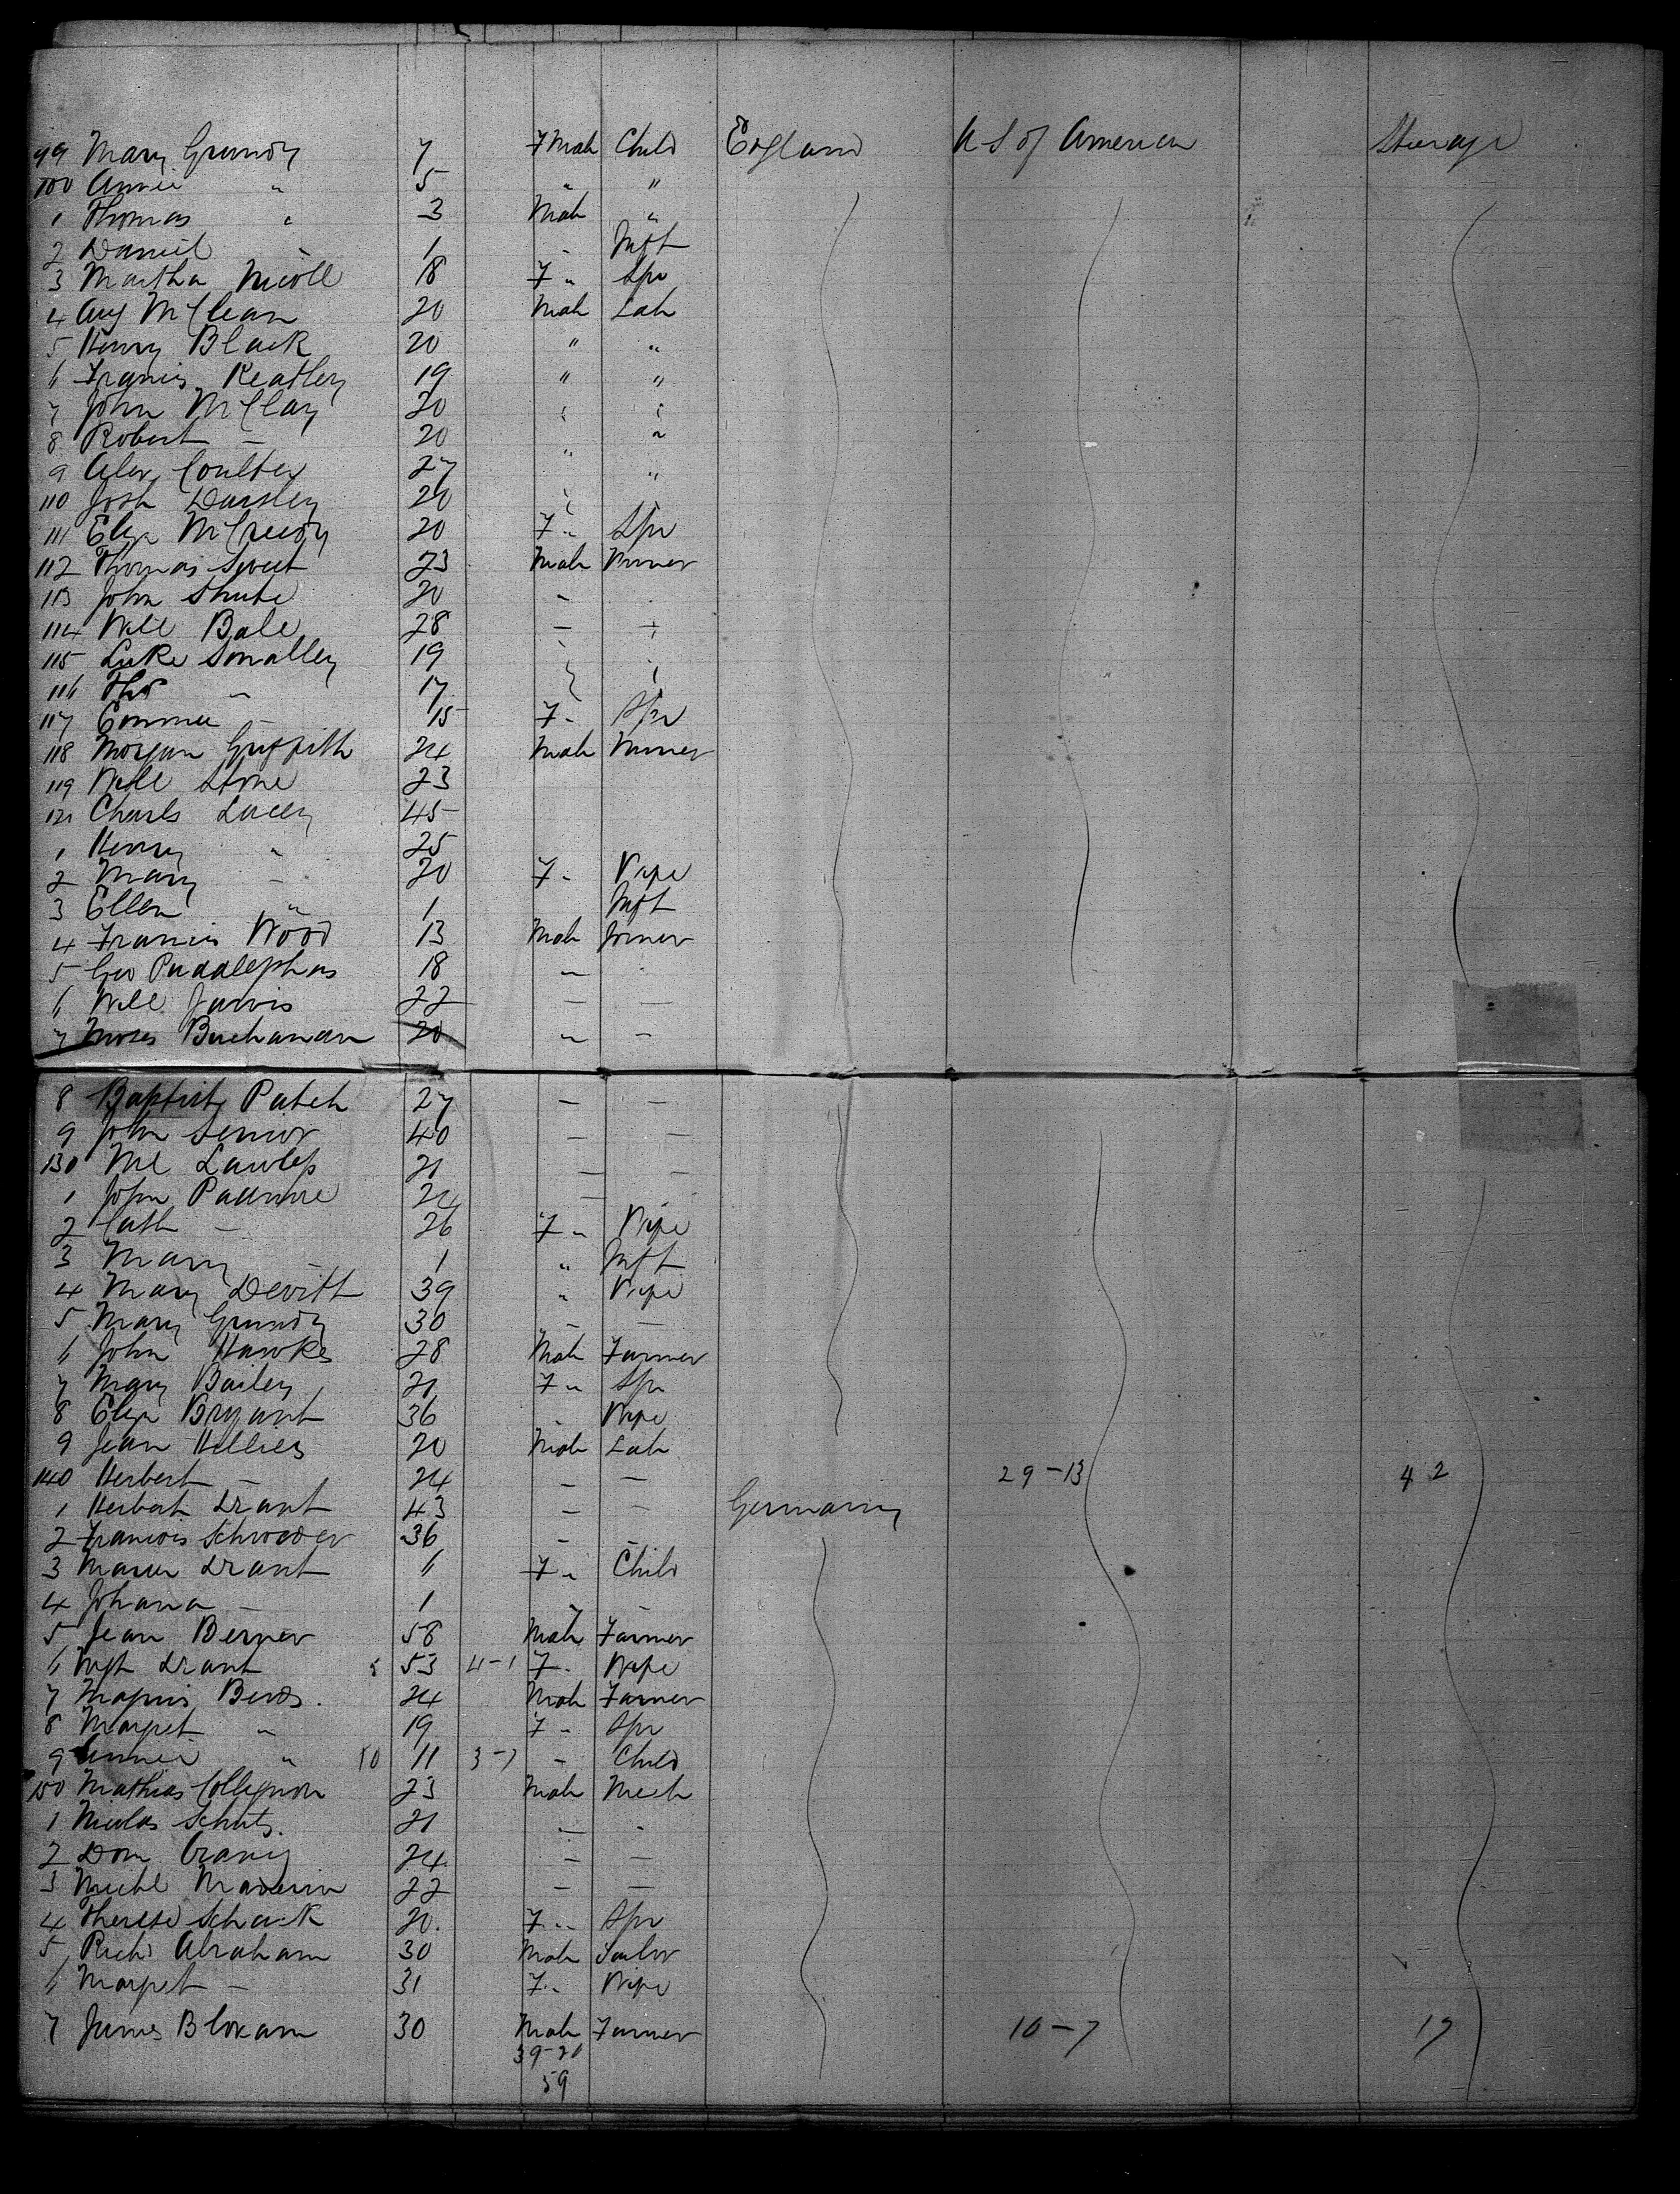 99 Mary Grundy 7 F Male Child England U S of America Steerage
100 Annie " 5 " "
1 Thomas " 3 Male "
2 Daniel " 1 " Inft
3 Martha Nicoll 18 F " Spr
4 Aug McClean 20 Male Lab
5 Henry Black 20 " "
6 Francis Keatley 19 " "
7 John McClay 20 " "
8 Robert — 20 " "
9 Alex Coulter 27 " "
110 Josh Darsley 20 " "
111 Eliza McCreedy 20 F " Spr
112 Thomas Sweet 23 Male Miner
113 John Shute 20 —
114 Will Bale 28 —
115 Luke Smalley 19 " "
116 Thos " 17 " "
117 Emma — 15 F " Spr
118 Morgan Griffith 24 Male Miner
119 Will Stone 23
120 Charls Lacey 45
1 Henry " 25
2 Mary — 20 F " Wife
3 Ellen " 1 Inft
4 Francis Wood 13 Male Joiner
5 Geo 18 —
6 Will Jarvis 22 — —
7 Moses Buchanan 20 " —
8 Baptist Patch 27 — —
9 John Senior 40 — —
130 Ml Lawless 21 — —
1 John Padmore 24 —
2 Cath — 26 F " Wife
3 Mary — 1 " Inft
4 Mary Devitt 39 " Wife
5 Mary Grundy 30 — —
6 John Hawkes 28 Male Farmer
7 Mary Bailey 21 F " Spr
8 Eliza Bryant 36 " Wife
9 Jean Hellies 20 Male Lab
140 Herbert — 24 — — 29-13 42
1 Herbert Drant 43 — — Germany
2 Francois Schroeder 36 — —
3 Drant 6 F " Child
4 Johana — 1 " —
5 Jean Berner 58 Male Farmer
6 Drant 53 4-1 F " Wife
7 24 Male Farmer
8 Margret " 19 F " Spr
9 Annie " 10 11 3-7 — Child
150 Mathias Collignon 23 Male Mech
1 Nicolas Schuts. 21 — -
2 Dom 24 — —
3 Michl 22 — —
4 Therese Schack 20. F " Spr
5 Richd Abraham 30 Male Tailor
6 Margret — 31 F " Wife
7 James Bloxam 30 Male Farmer 10-7 17
39-20
59